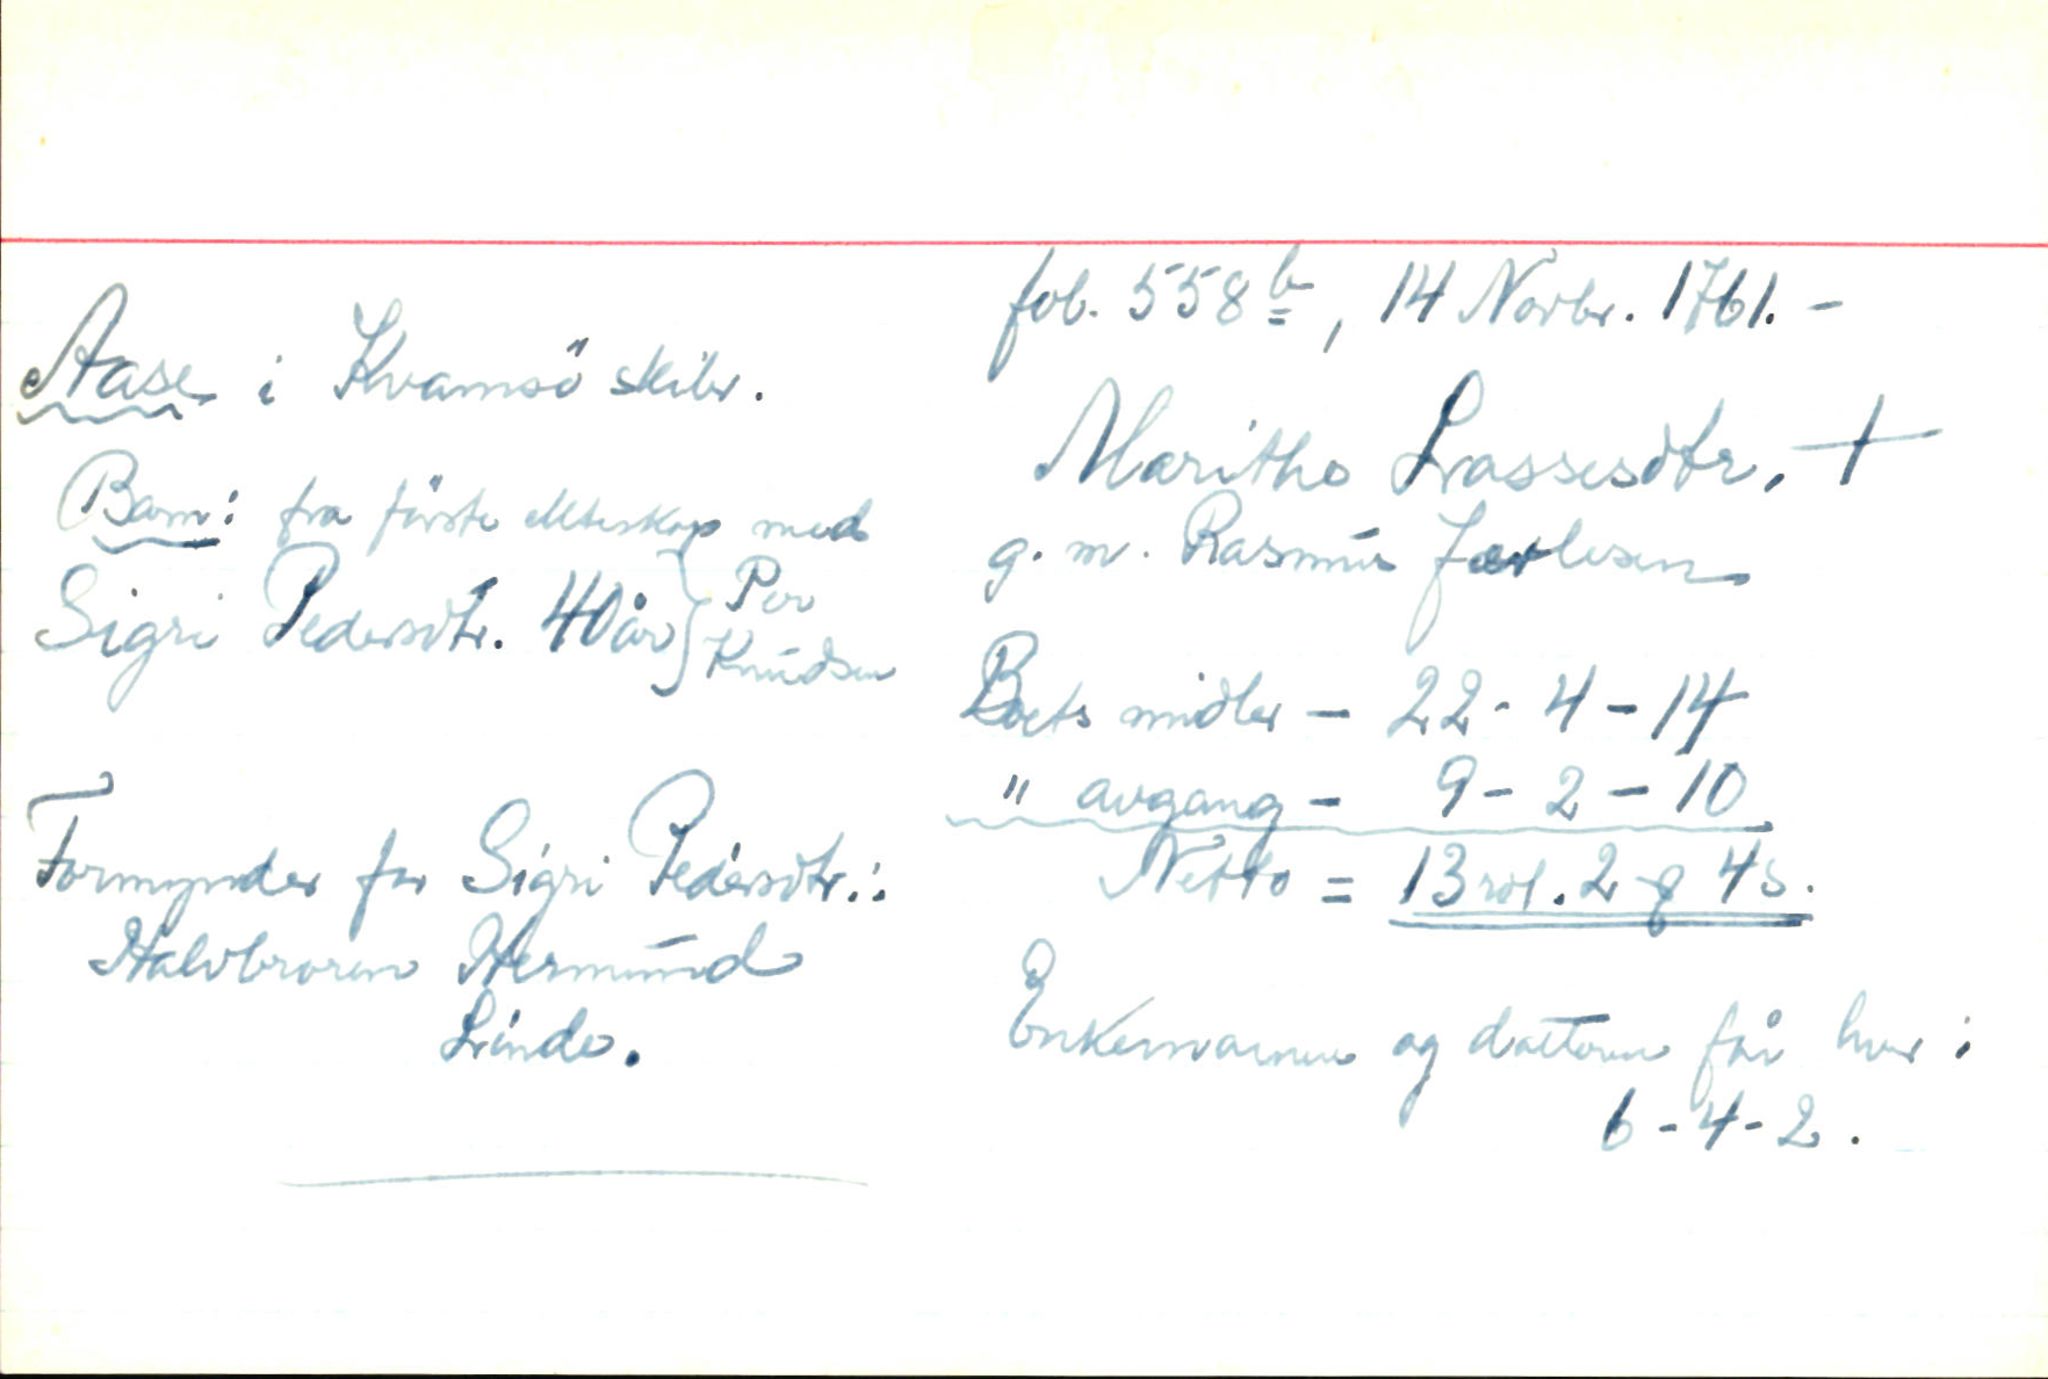 Aase i Kvamsö skibr.
Barn: fra förste ekteskap med
Sigri Pedersdtr. 40 år } Per
Knudsen
Formynder for Sigri Pedersdtr.:
Halvbroren Hermund
Linde.
fol. 558 b, 14 Novbr. 1761. -
Maritho Lassesdtr. +
g. m. Rasmus
Boets midler - 22 - 4 - 14
" avgang - 9 - 2 - 10
Netto = 13 rdl. 2 4 s.
Enkemannen og datteren får hver:
6 - 4 - 2.